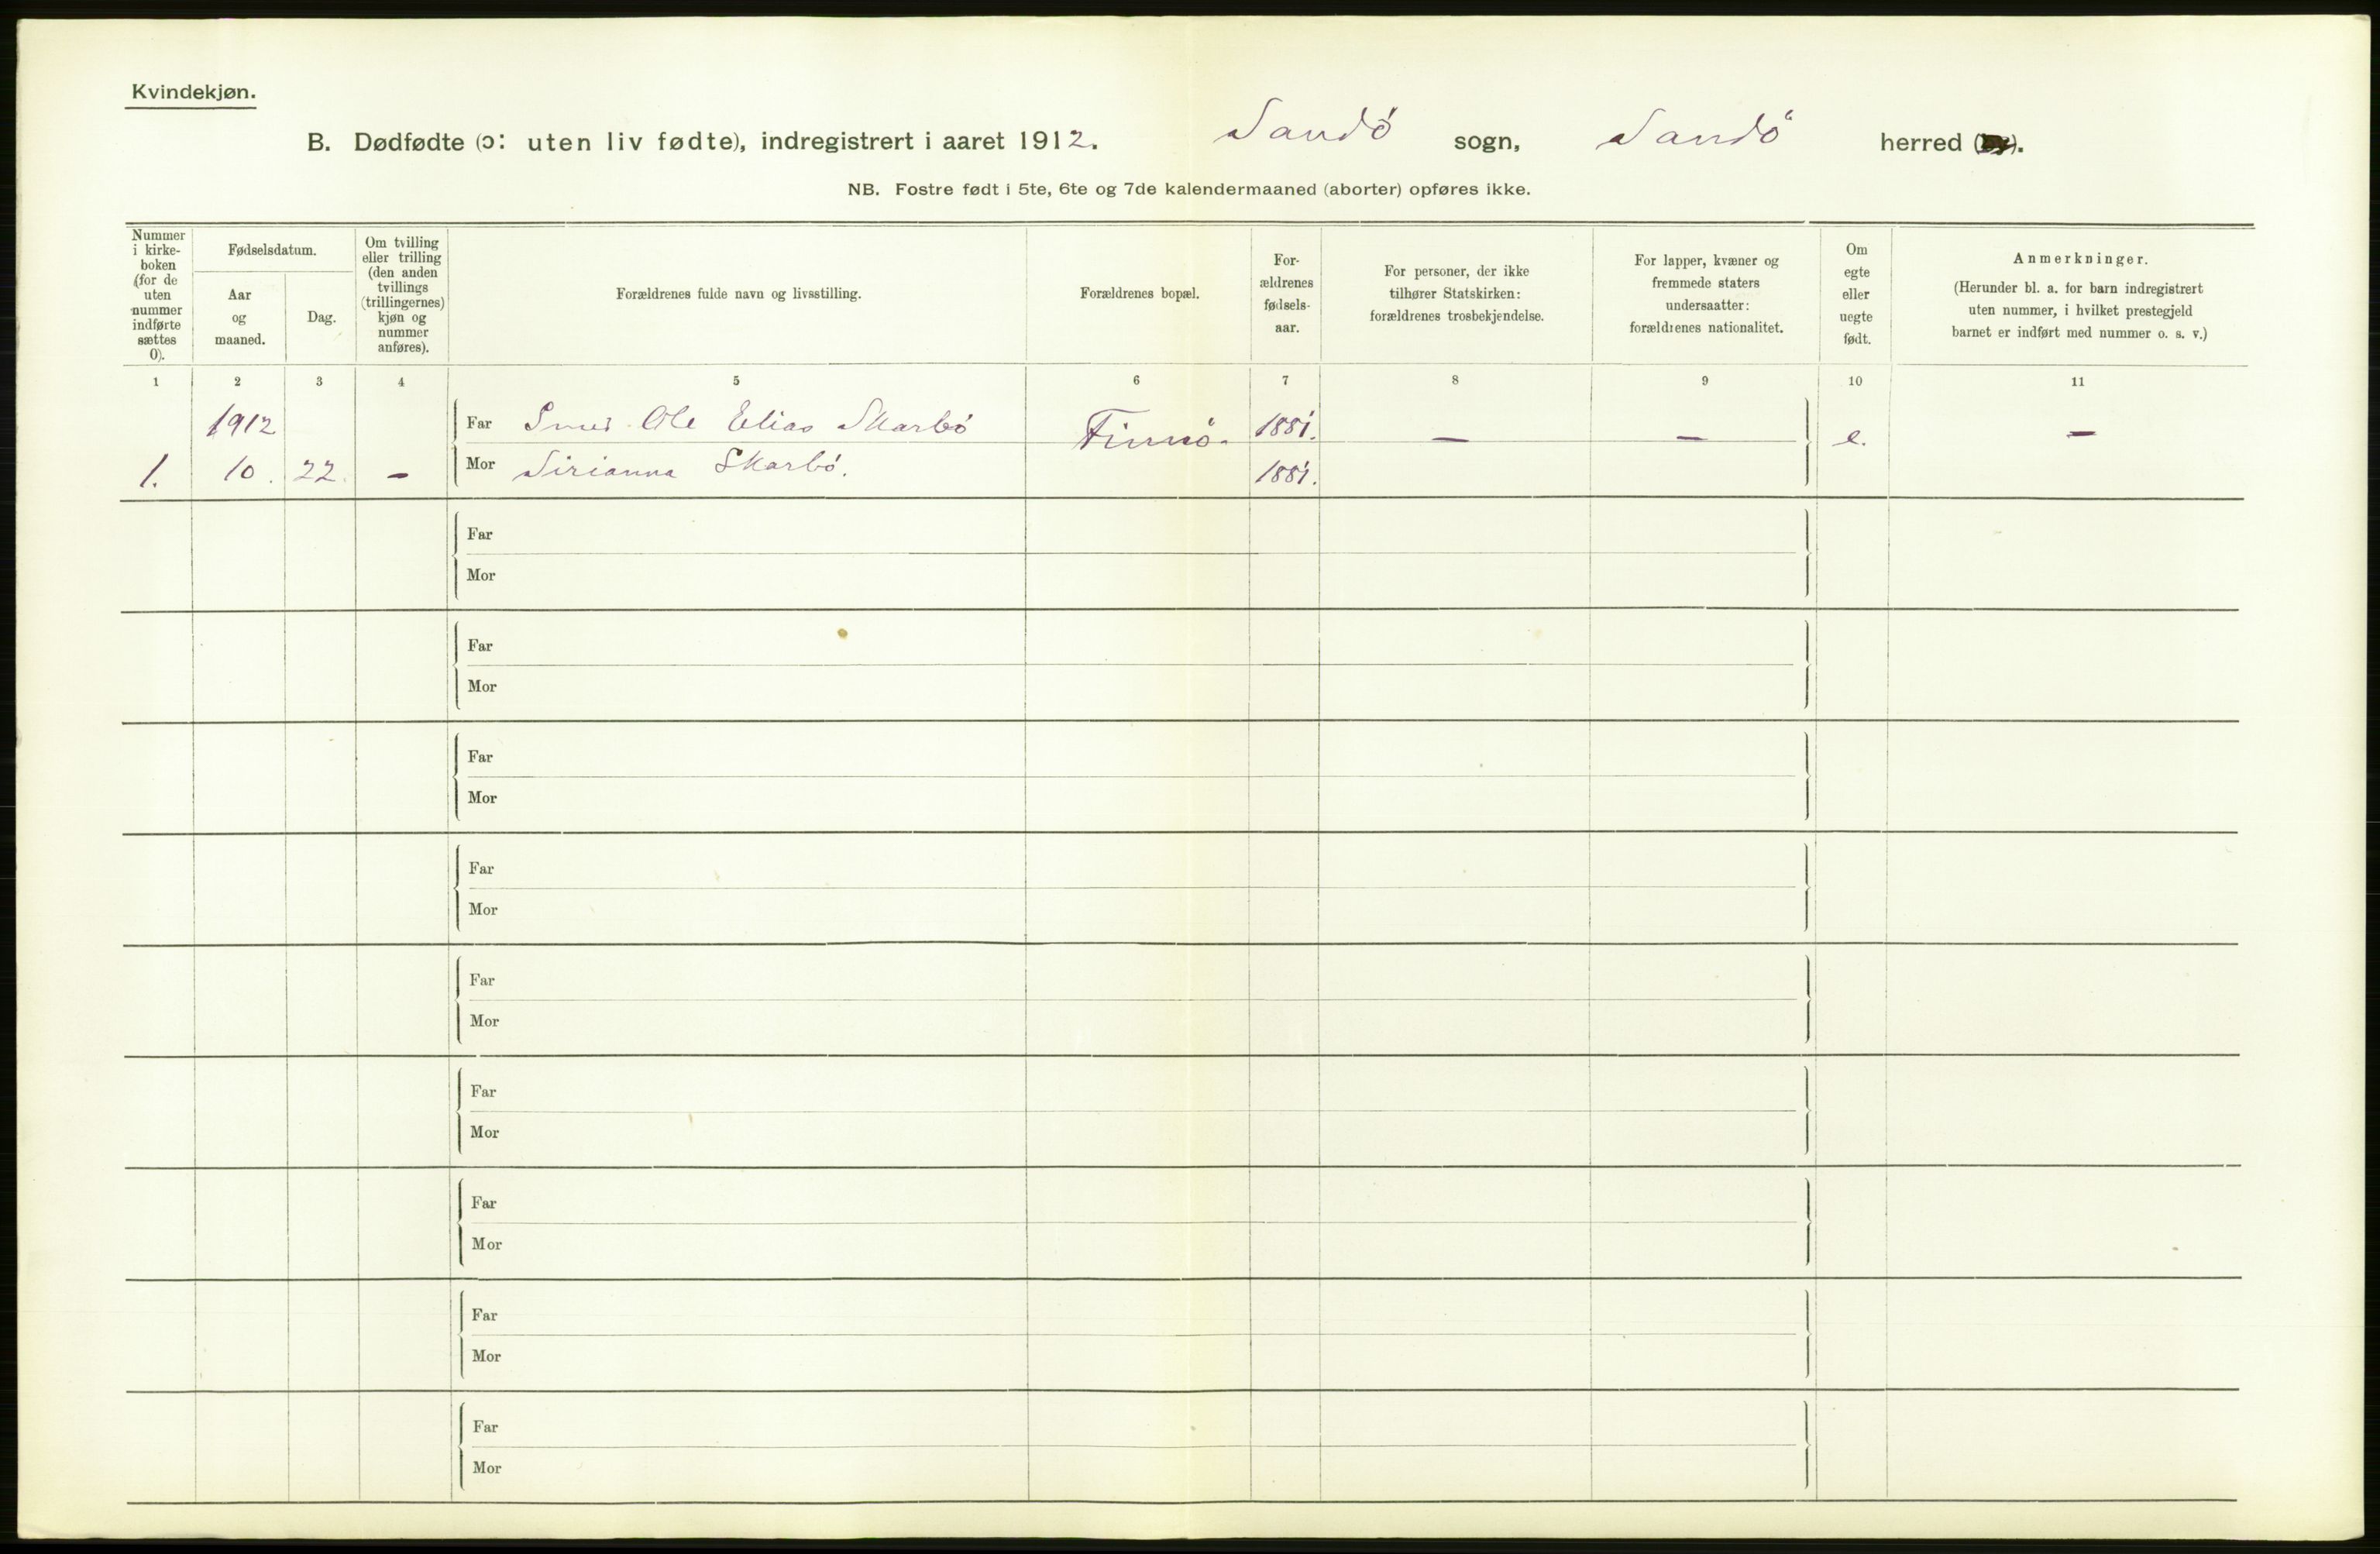 Kvindekjøn.
B. Dødfødte (ɔ: uten liv fødte), indregistrert i aaret 1912. Sandö sogn, Sandö herred
NB. Fostre født i 5te, 6te og 7de kalendermaaned (aborter) opføres ikke.
Nummer i kirke-boken (for de uten nummer indførte sættes 0).
Fødselsdatum.
Aar og maaned.
Dag.
Om tvilling eller trilling (den anden tvillings (trillingernes) kjøn og nummer anføres).
Forældrenes fulde navn og livsstilling.
Forældrenes bopæl.
For-ældrenes fødsels-aar.
For personer, der ikke tilhører Statskirken: forældrenes trosbekjendelse.
For lapper, kvæner og fremmede staters undersaatter: forældrenes nationalitet.
Om egte eller uegte født.
Anmerkninger.
(Herunder bl. a. for barn indregistrert uten nummer, i hvilket prestegjeld barnet er indført med nummer o. s. v.)
1 2 3 4 5 6 7 8 9 10 11
1912 Far Smed Ole Elias Skarbö Finnö. 1881. — — e. —
1. 10. 22. - Mor Sirianna Skarbö. 1881.
Far
Mor
Far
Mor
Far
Mor
Far
Mor
Far
Mor
Far
Mor
Far
Mor
Far
Mor
Far
Mor